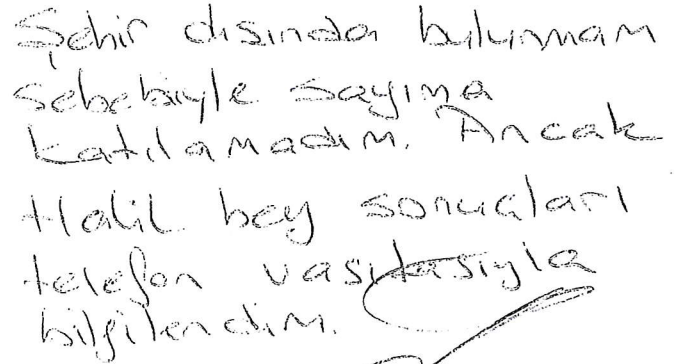 Şehir dışında bulunmam
sebebiyle sayıma
katılamadım. Ancak
Halil bey sonuçları
telefon vasıtasıyla
bilgilendim.